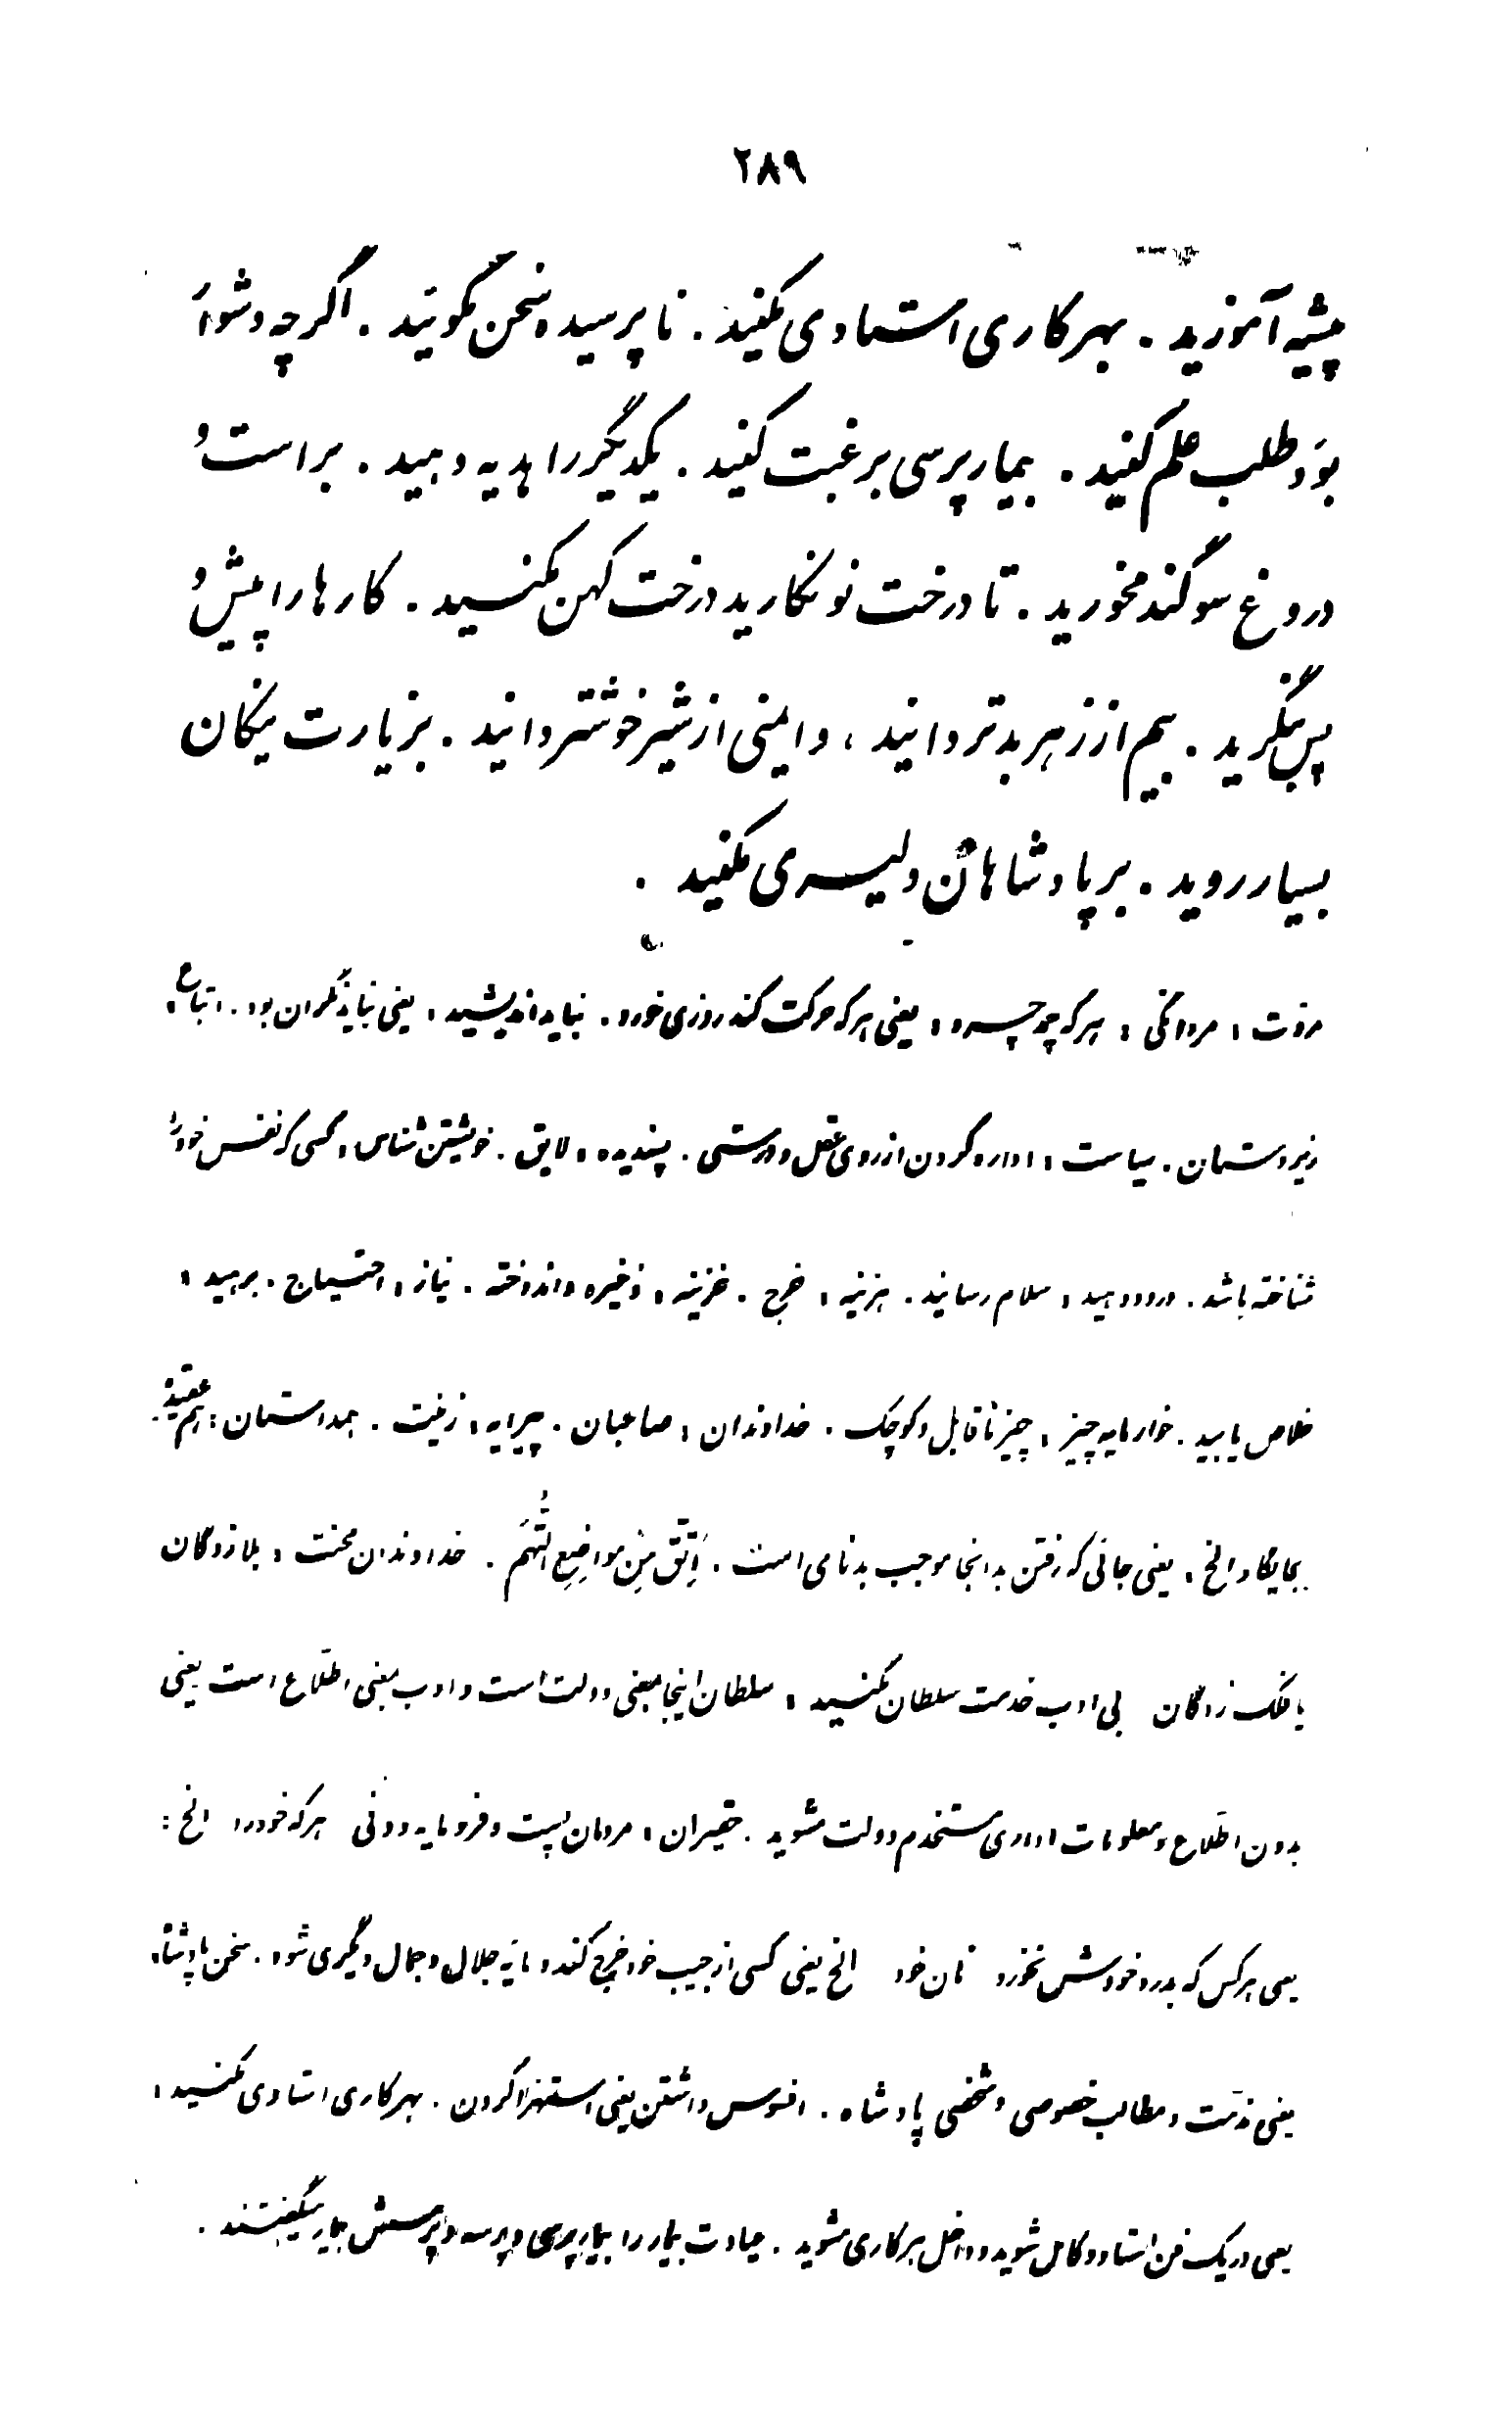 ۲۸۹
پیشه آموزید . بهر کاری استادی مکنید . ناپرسیده سخن مگوئید . اگر چه دشوار
بوَد طلب علم کنید . بیمار پرسی برغبت کنید . یکدیگر را هدیه دهید . براست و
دروغ سوگند مخورید . تا درخت نو نکارید درخت کهن مکنید . کارها را پیش و
پس بنگرید . بیم از زهر بدتر دانید ، و ایمنی از شیر خوشتر دانید . بزیارت نیکان
بسیار روید . بر پادشاهان دلیری مکنید .
مروّت ، مردانگی ، هر که چرد ، یعنی هر که حرکت کند روزی خورد . نباید اندیشید ، یعنی نباید نگران بود . اتباع ،
زیردستان . سیاست ، اداره کردن از روی عقل و درستی . پسندیده ، لایق . خویشتن شناس ، کسی که نفس خود را
شناخته باشد . درود دهید ، سلام رسانید . هزینه ، خرج . خزینه ، ذخیره و اندوخته . نیاز ، احتیاج . برهید ،
خلاص یابید . خوار مایه چیز ، چیز ناقابل و کوچک . خداوندان ، صاحبان . پیرایه ، زینت . همداستان : هم عقیده .
بجایگاه الخ ، یعنی جائی که رفتن بدانجا موجب بدنامی است . اِتَّقِ مِن مَواضِعِ التُّهَم . خداوندان محنت ، بلازدگان
یا فلک زدگان بی ادب خدمت سلطان مکنید ، سلطان اینجا بمعنی دولت است و ادب بمعنی اطّلاع است یعنی
بدون اطّلاع و معلومات اداری مستخدم دولت مشوید . حقیران ، مردمان پست و فرومایه و دنی هر که خود را الخ :
یعنی هر کس که بدرد خودش نخورد نان خود الخ یعنی کسی از جیب خود خرج کند و مایه جلال و جمال دیگری شود . سخن پادشاه ،
یعنی مذمّت و مطالب خصوصی و شخصی پادشاه . افسوس داشتن یعنی استهزا کردن . بهر کاری استادی مکنید ،
یعنی در یک فن استاد و کامل شوید و داخل هر کاری مشوید . عیادت بیمار را بیمار پرسی و پرسه و پرسش بیمار میگفتند .